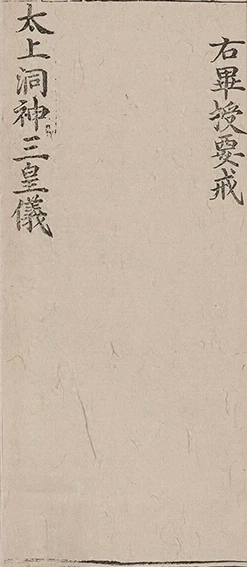 右畢授要戒
太上洞神三皇儀